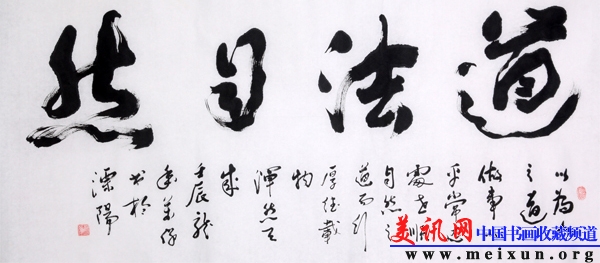 道法自然
以为
之道
做事
平常
處
自然之
道而行
厚德載
物
渾然天
成
壬辰龍
书於
溧陽
美讯网
中国书画收藏频道
www.meixun.org